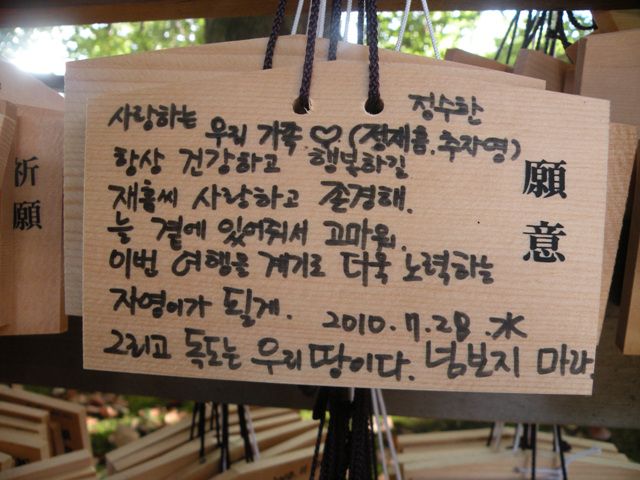 정수한
사랑하는 우리 가족 ♡ (정재홍, 추자영)
항상 건강하고 행복하길
재홍씨 사랑하고 존경해.
늘 곁에 있어줘서 고마워.
이번 여행을 계기로 더욱 노력하는
자영이가 될게. 2010. 7. 28. 水
그리고 독도는 우리 땅이다. 넘보지 마라.
願意
祈願